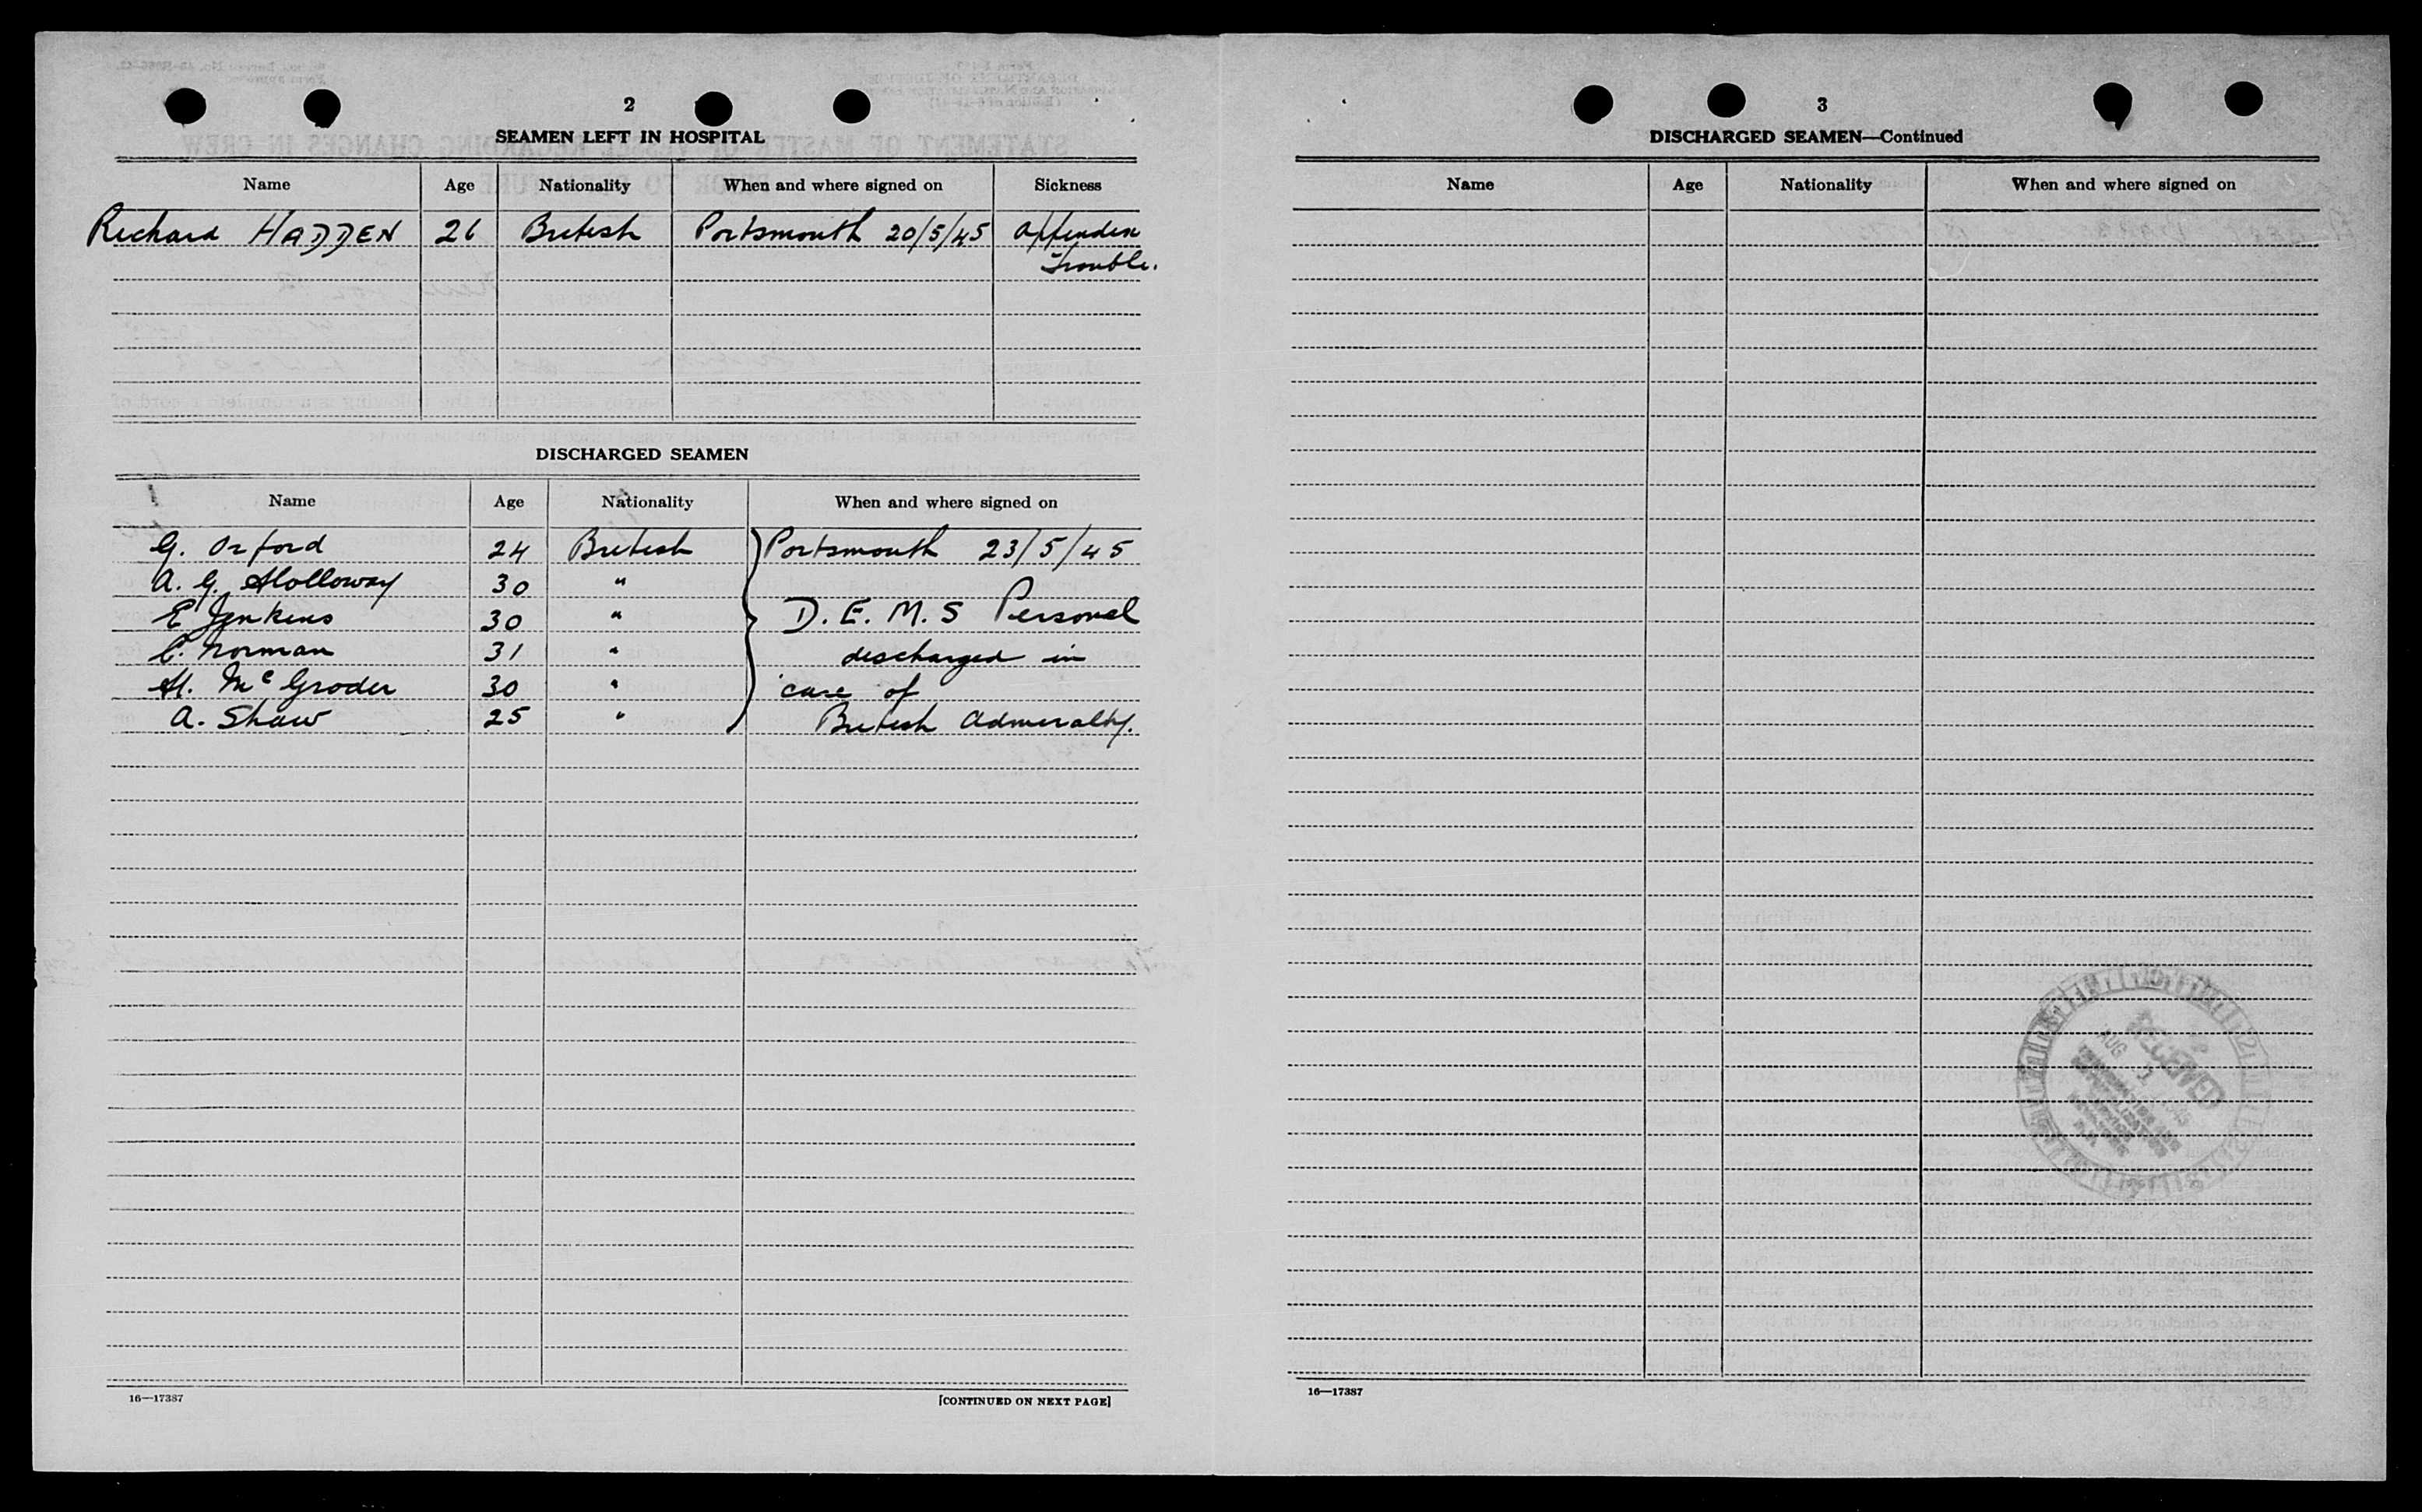 2
SEAMEN LEFT IN HOSPITAL
Name Age Nationality When and where signed on Sickness
Richard HADDEN 26 British Portsmouth 20/5/45 Appendix
Trouble.
DISCHARGED SEAMEN
Name Age Nationality When and where signed on
G. Orford 24 British Portsmouth 23/5/45
A. G. Holloway 30 "
E Jenkins 30 " D. E. M. S Personel
C. Norman 31 " discharged in
H. McGroder 30 " care of
A. Shaw 25 " British Admiralty.
16—17387 [CONTINUED ON NEXT PAGE]
3
DISCHARGED SEAMEN—Continued
Name Age Nationality When and where signed on
RECEIVED
AUG
IMMIGRATION AND
NATURALIZATION
SERVICE
16—17387